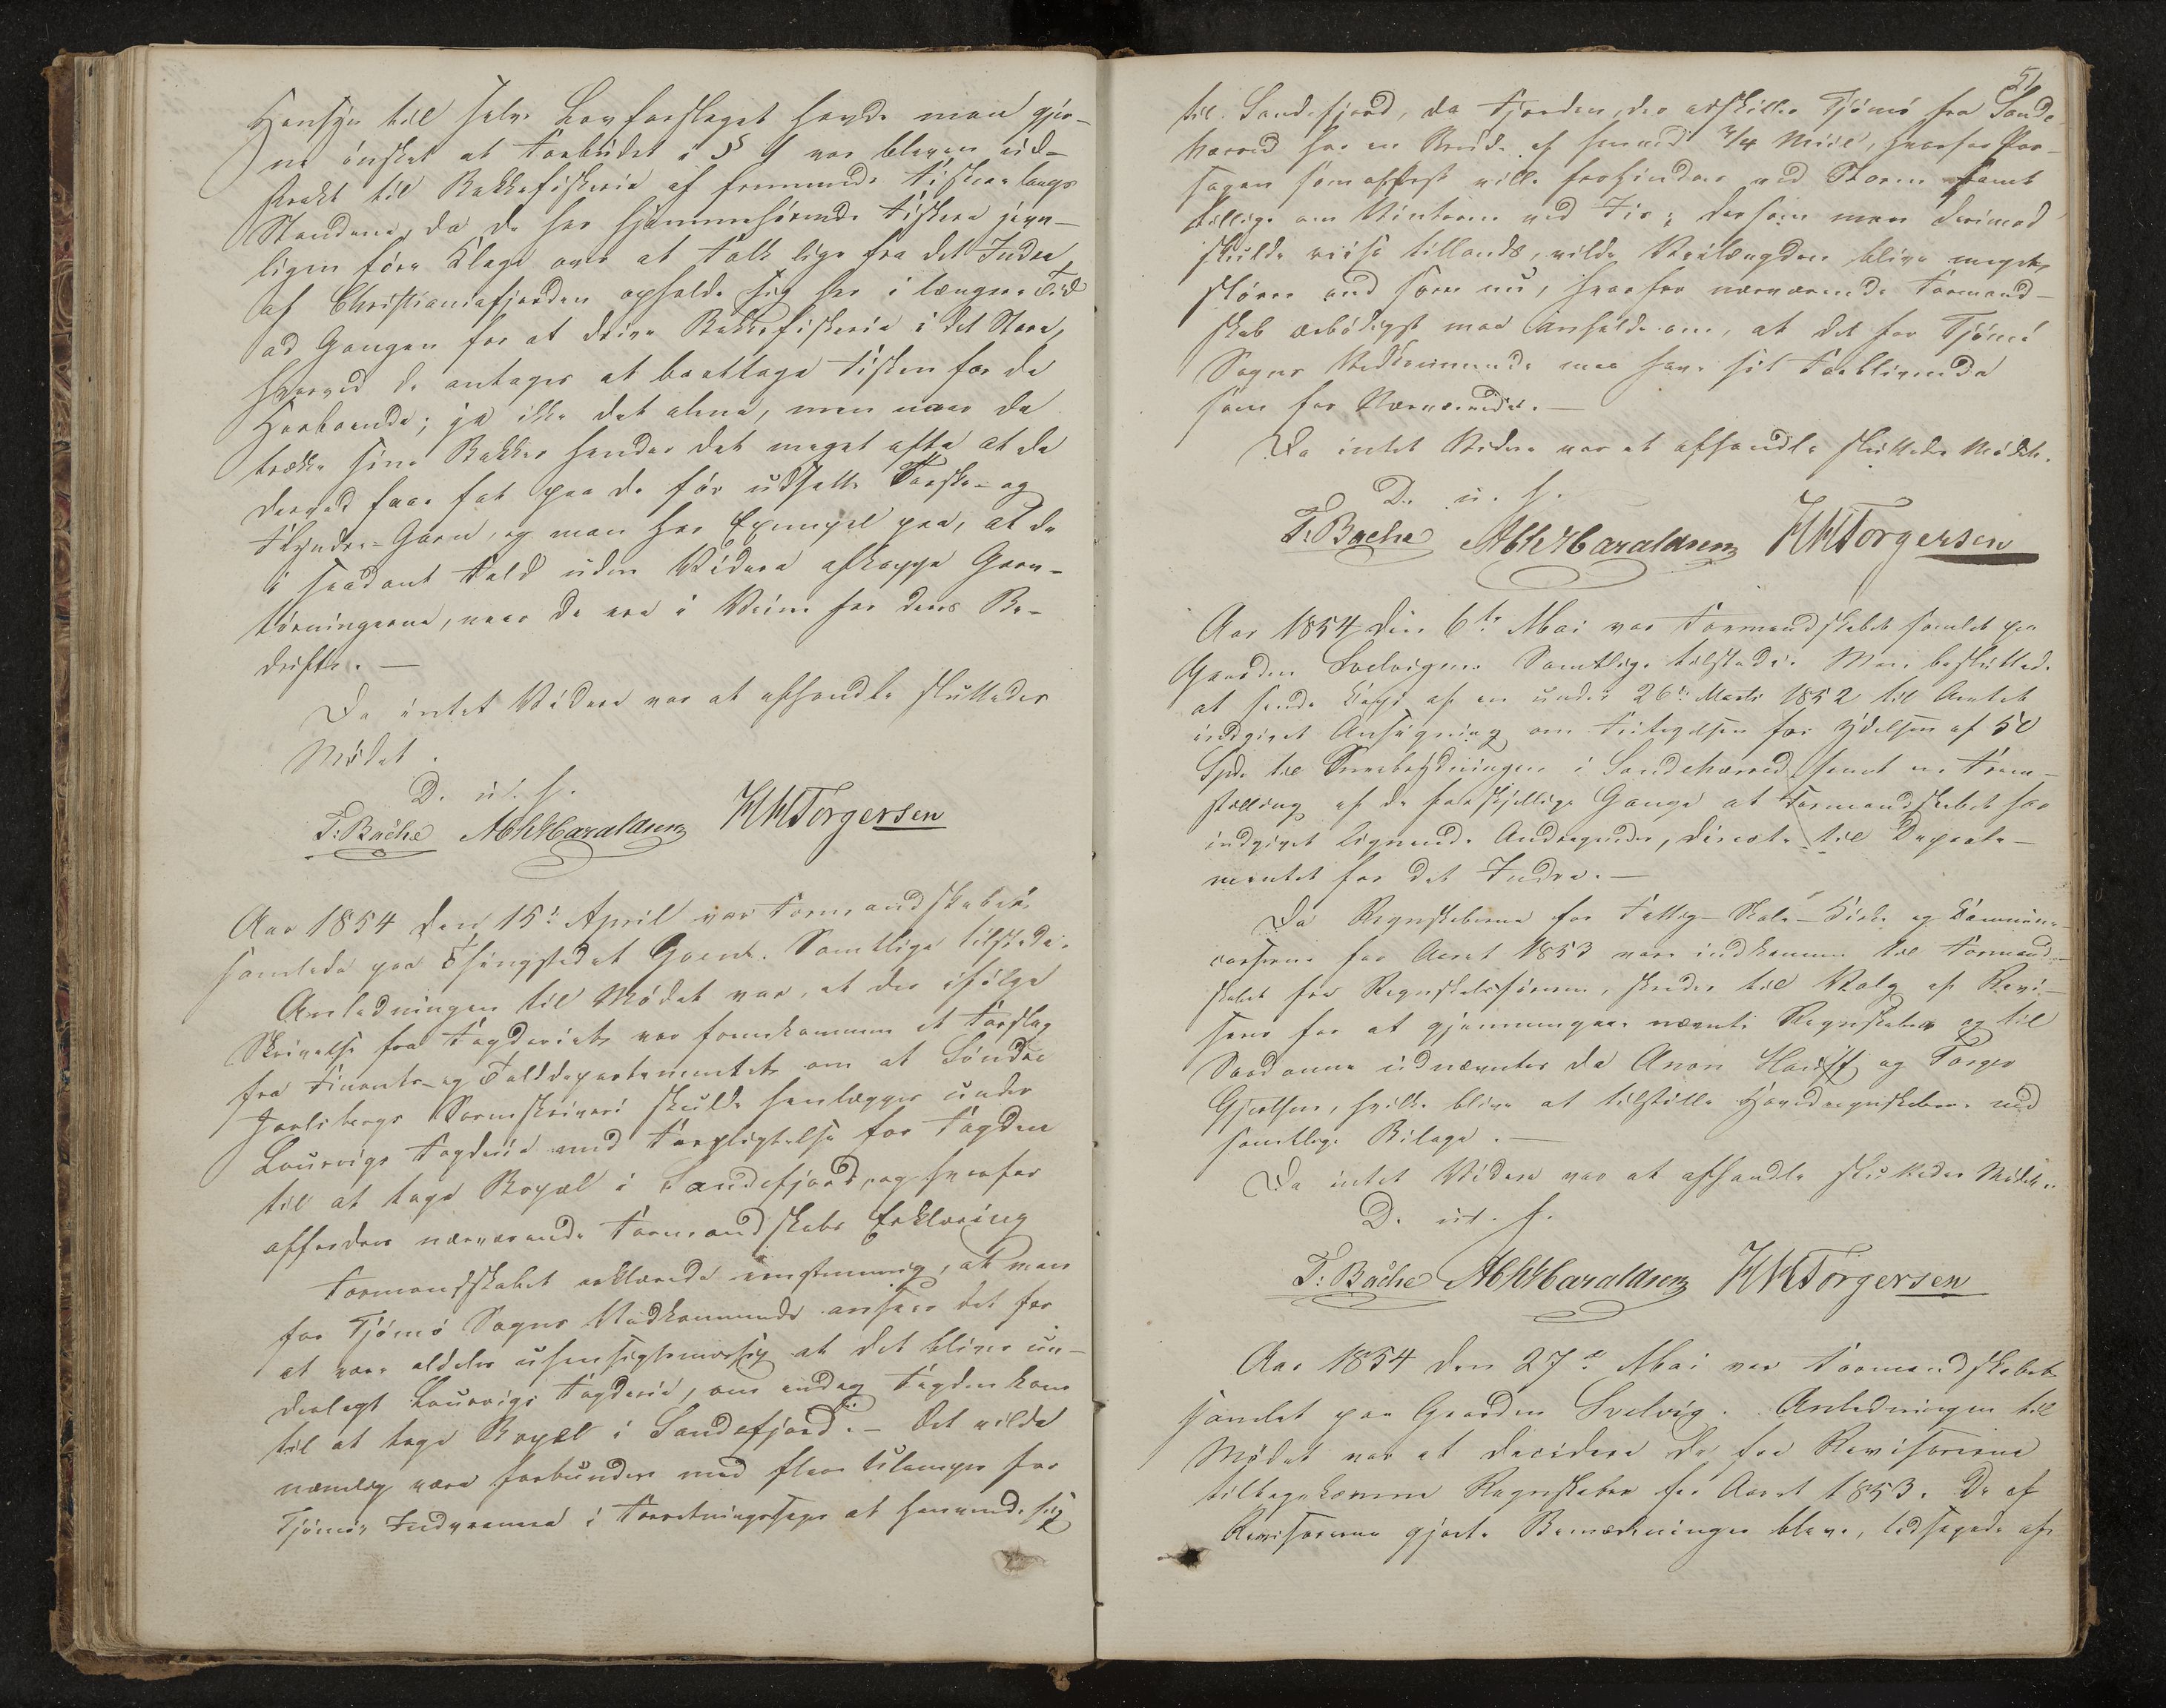 Hensyn til selve Lovforslaget havde man gjer-
ne ønsket at Forbudet i § 1 var bleven ud-
strakt til Bakkefiskerie af fremmede Fiskere langs
Standene, da de her hjemmehørende Fiskere jevn-
ligen føre Klage over at Folk lige fra det Indre
af Christianiafjorden opholde sig her i længere Tid
ad Gangen for at drive Bakkefiskerie i det Store,
hvorved de antages at borttage Fisken for de
Herboende; ja ikke det alene, men naar de
trække sine Bakker hender det meget ofte at de
derved faae fat paa de før udsatte Torske- og
Flyndre-Garn, og man har Exempel paa, at de
i saadant Fald uden Videre afkappe Garn-
tørningerne, naar de ere i Veien for deres Be-
drifter. —
Da intet Videre var at afhandle sluttedes
Mødet.
D. u. s.
T. Bache AbhHaraldsen HHTorgersen
Aar 1854 den 15de April var Formandskabet
samlede paa Thingstedet Goent. Samtlige tilstede.
Anledningen til Mødet var, at der ifølge
Skrivelse fra Fogderiet var fremkommen et Forslag
fra Finants- og Tolddepartementet om at Søndre
Jarlsbergs Sorenskriveri skulde henlægges under
Laurvigs Fogderie med Forpligtelse for Fogden
til at tage Bopæl i Sandefjord, og hvorfor
affordres nærværende Formandskabs Erklæring
Formandskabet erklærede eenstemmig, at man
for Tjømø Sogns Vedkommende ansaae det for
at være aldeles uhensigtsmæssig at det bliver un-
derlagt Laurvigs Fogderie, om endog Fogden kom
til at tage Bopæl i Sandefjord. — Det vilde
nemlig være forbunden med flere Ulemper for
Tjømøs Indvaanere i Forretningssager at henvende sig
51
til Sandefjord, da Fjorden, der adskiller Tjømø fra Sande-
herred har en Brede af henved 3/4 Miil, hvorfor Pas-
sagen som oftest ville forhindres ved Storm samt
tillige om Vinteren ved Iis; dersom man derimod
skulde reise tillands, vilde Veilængden blive meget
større end som nu, hvorfor nærværende Formand-
skab ærbødigst maa anholde om, at det for Tjømø
Sogns Vedkommende maa have sit Forblivende
som for Nærværende. —
Da intet Videre var at afhandle sluttedes Mødet.
D. u. s.
T. Bache AbhHaraldsen HHTorgersen
Aar 1854 den 6te Mai var Formandskabet samlet paa
Gaarden Svelvigen. Samtlige tilstede. Man besluttede
at sende Copi af en under 26de Marts 1852 til Amtet
indgivet Ansøgning om Fritagelsen for Ydelsen af 50
Spd. til Brobygningen i Sandeherred samt en Frem-
stilling af de forskjellige Gange at Formandskabet har
indgivet lignende Andragender, directe til Departe-
mentet for det Indre. —
Da Regnskaberne for Fattig- Skole- Kirke og Commune-
casserne for Aaret 1853 vare indkomne til Formand-
skabet fra Regnskabsførerne, skreds til Valg af Revi-
sorer for at gjennemgaae nævnte Regnskaber og til
Saadanne udnævntes da Anon Hauff og Torger
Gjertsen, hvilke blive at tilstille Hovedregnskaberne med
samtlige Bilage. —
Da intet Videre var at afhandle sluttedes Mødet.
D. u. s.
T. Bache AbhHaraldsen HHTorgersen
Aar 1854 den 27de Mai var Formandskabet
samlet paa Gaarden Svelvig. Anledningen til
Mødet var at decidere de fra Revisorerne
tilbagekomne Regnskaber for Aaret 1853. De af
Revisorerne gjorte Bemærkninger bleve, ledsagede af